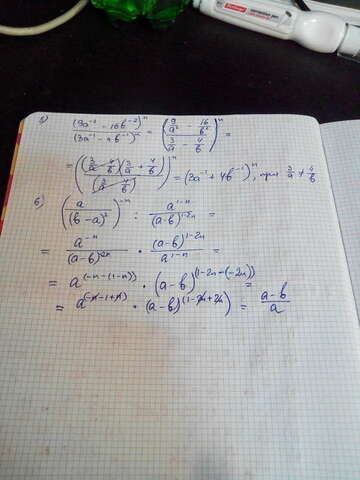 5) (9a⁻² - 16b⁻²)ⁿ / (3a⁻¹ - 4b⁻¹)ⁿ = ((9/a² - 16/b²) / (3/a - 4/b))ⁿ =
= ((3/a - 4/b)(3/a + 4/b) / (3/a - 4/b))ⁿ = (3a⁻¹ + 4b⁻¹)ⁿ, при 3/a ≠ 4/b
6) (a / (b-a)²)⁻ⁿ : a¹⁻ⁿ / (a-b)¹⁻²ⁿ =
= a⁻ⁿ / (a-b)⁻²ⁿ · (a-b)¹⁻²ⁿ / a¹⁻ⁿ =
= a^(-n-(1-n)) · (a-b)^(1-2n-(-2n)) =
= a^(-n-1+n) · (a-b)^(1-2n+2n) = (a-b) / a